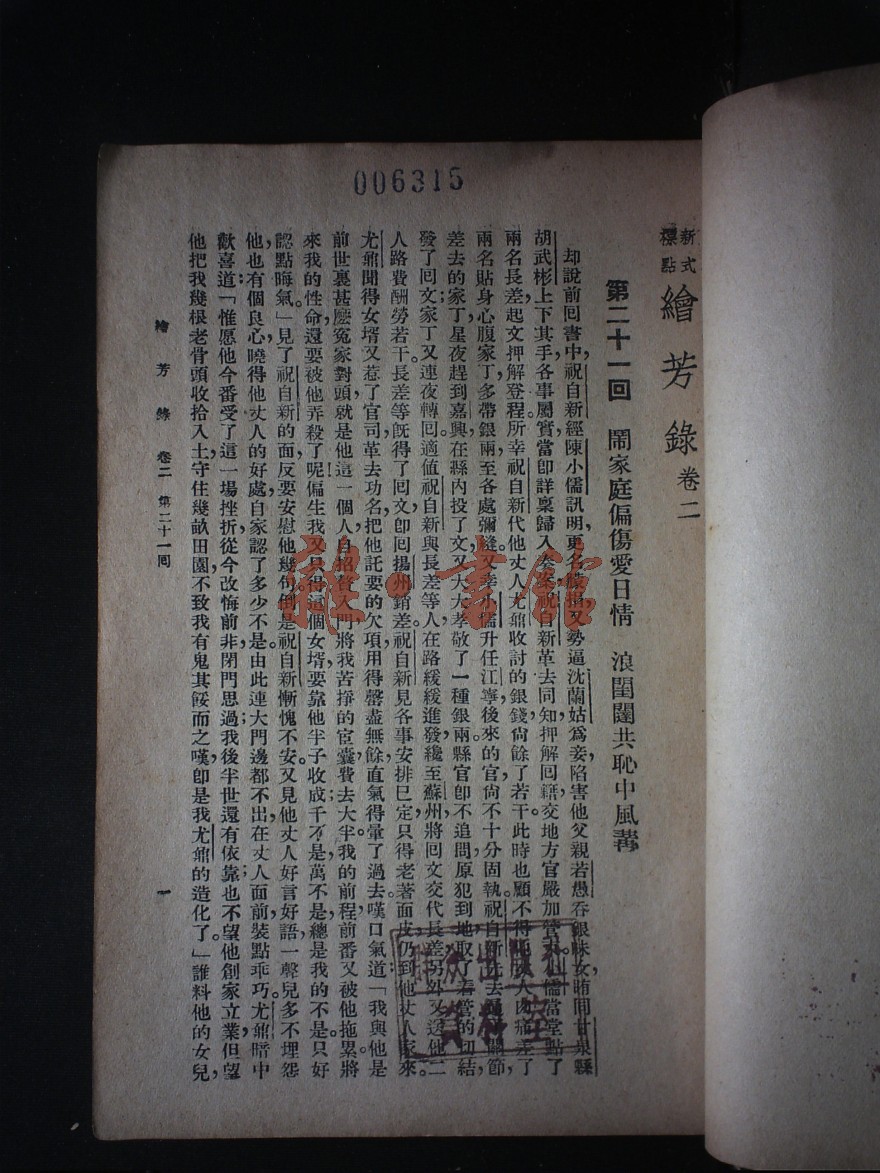 006315
新式標點 繪芳錄 卷二
第二十一回　鬧家庭偏傷愛日情　浪閨闥共恥中風冓
却說前回書中，祝自新經陳小儒訊明，更名又勢逼沈蘭姑爲妾，陷害他父親若愚吞銀昧女，賄同甘泉縣
胡武彬上下其手，各事屬實，當卽詳稟歸入奏案，祝自新革去同知，押解回籍，交地方官嚴加管小儒當堂點了
兩名長差，起文押解登程。所幸祝自新代他丈人尤鼐收討的銀錢，尙餘了若干，此時也顧不得人肉痛，弄了
兩名貼身心腹家丁，多帶銀兩，至各處彌縫。又幸小儒升任江寧，後來的官，尙不十分固執，祝自新去節，
差去的家丁，星夜趕到嘉興，在縣內投了文，又大大孝敬了一種銀兩，縣官卽不追問原犯到地，取了管的切結，
發了回文，家丁又連夜轉回。適値祝自新與長差等人，在路緩緩進發，纔至蘇州，將回文交代長差，另外又送他二
人路費酬勞若干。長差等旣得了回文，卽回揚州銷差。祝自新見各事安排已定，只得老著面皮，仍到他丈人家來。
尤鼐聞得女壻又惹了官司，革去功名，把他託要的欠項，用得罄盡無餘，直氣得暈了過去，嘆口氣道：「我與他是
前世裏甚麽冤家對頭，就是他這一個人，自招督入門，將我苦掙的宦囊，費去大半，我的前程，前番又被他拖累，將
來我的性命，還要被他弄殺了呢！偏生我又只得這個女壻，要靠他半子收成，千不是，萬不是，總是我的不是。只好
認點晦氣。」見了祝自新的面，反要安慰他幾句。倒是祝自新慚愧不安。又見他丈人好言好語，一聲兒多不埋怨
他，也有個良心，曉得他丈人的好處，自家認了多少不是。由此連大門邊都不出，在丈人面前，裝點乖巧。尤鼐暗中
歡喜道：「惟愿他今番受了這一場挫折，從今改悔前非，閉門思過，我後半世還有依靠；也不望他創家立業，但望
他把我幾根老骨頭收拾入土，守住幾畝田園，不致我有鬼其餒而之嘆，卽是我尤鼐的造化了。」誰料他的女兒，
繪芳錄　卷二　第二十一回　一